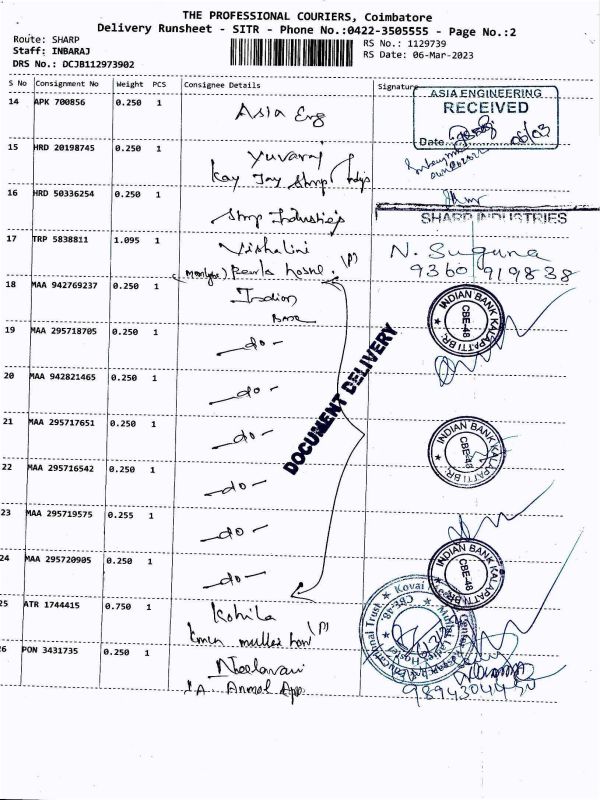 THE PROFESSIONAL COURIERS, Coimbatore
Delivery Runsheet - SITR - Phone No.:0422-3505555 - Page No.:2
Route: SHARP
Staff: INBARAJ
DRS No.: DCJB112973902
RS No.: 1129739
RS Date: 06-Mar-2023
S No Consignment No Weight PCS Consignee Details Signature
14 APK 700856 0.250 1 Asia Eng
ASIA ENGINEERING
RECEIVED
Date 06/03
15 HRD 20198745 0.250 1 Yuvaraj
Kay Jay Sharp
16 HRD 50336254 0.250 1 Sharp Industries
SHARP INDUSTRIES
17 TRP 5838811 1.095 1 Vishalini
hostel (P)
N. Suguna
9360 919838
18 MAA 942769237 0.250 1 Indian
Bank
INDIAN BANK KALAPATTI BR. CBE-48
19 MAA 295718705 0.250 1 -do-
20 MAA 942821465 0.250 1 -do-
DOCUMENT DELIVERY
21 MAA 295717651 0.250 1 -do-
INDIAN BANK KALAPATTI BR. CBE-48
22 MAA 295716542 0.250 1 -do-
23 MAA 295719575 0.255 1 -do-
24 MAA 295720905 0.250 1 -do-
INDIAN BANK KALAPATTI BR. CBE-48
25 ATR 1744415 0.750 1 Kohila
(P)
Educational Trust Kovai CBE-48
26 PON 3431735 0.250 1 Neelavani
Anmol App